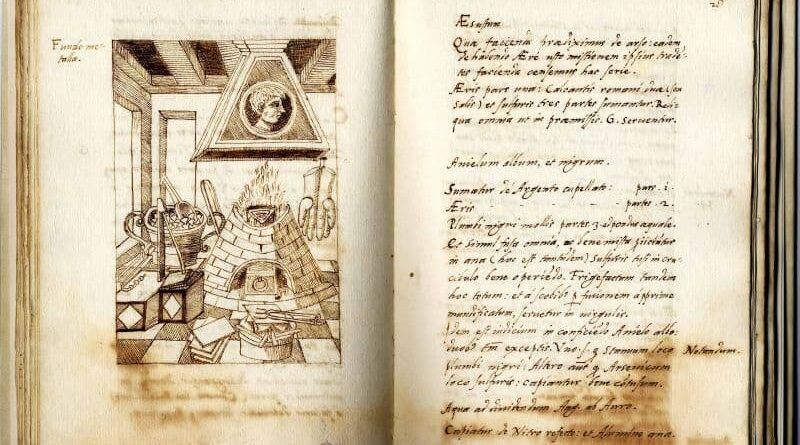 Fundo me-
talia.
29
Æs ustum
Qua facienda prædiximus de arso: eadem
de habendo Ære usto mistionem ipsius trade-
tes facienda censemus hac serie.
Æris pars una: Calcantis romani duæ (seu
Salis) et sulfuris tres partes sumantur. Reli
qua omnia ut in præmissis. G. serventur.
Anielum album, et nigrum.
Sumatur de Argento cupellato: pars. 1.
Æris - - - partes. 2.
Plumbi nigri mollis partes. 3.
Et simul fusa omnia, ac bene mista
in ana (hoc est tantundem) Sulfuris in cru
ciculo bene operiendo. Frigefactum tandem
hoc totum: et a scoriis fusionem apprime
mundificatum, servetur in
Idem est indicium in Anielo albo.
duobus exceptis. Uno, Stannum loco
plumbi nigri: Altero Arsenicum
loco sulfuris: capiantur bene
Notandum.
Aqua ad dividendum Arg. ab Auro.
Capiatur de Nitro refecto: et Alumine ana.